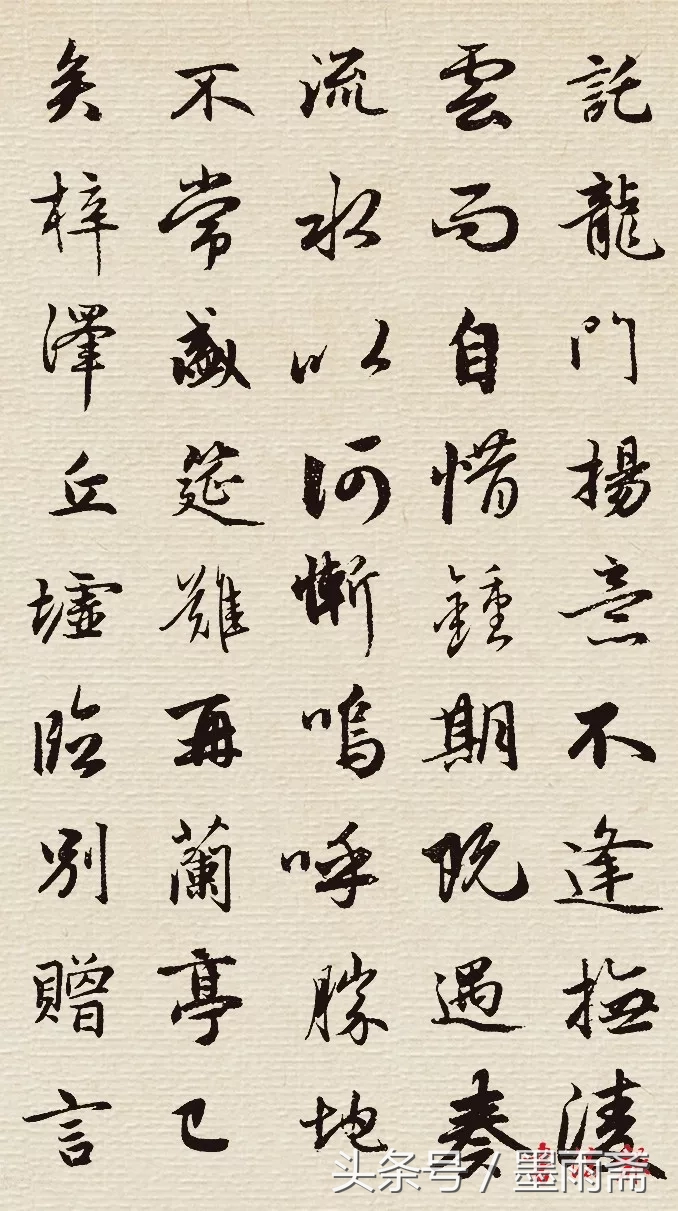 託龍門揚意不逢撫凌
雲而自惜鍾期既遇奏
流水以何慚嗚呼勝地
不常盛筵難再蘭亭已
矣梓澤丘墟臨別贈言
头条号 / 墨雨斋